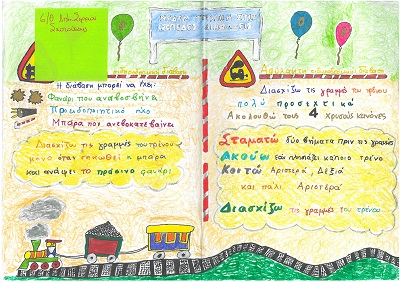 6/Θ Δημ. Σχολείο
Η διάβαση μπορεί να έχει:
Φανάρι που αναβοσβήνει
Προειδοποιητικό ήχο
Μπάρα που ανεβοκατεβαίνει
Διασχίζω τις γραμμές του τρένου
μόνο όταν σηκωθεί η μπάρα
και ανάψει το πράσινο φανάρι
Διασχίζω τις γραμμές του τρένου
πολύ προσεχτικά
Ακολουθώ τους 4 χρυσούς κανόνες
Σταματώ δύο βήματα πριν τις γραμμές
Ακούω εάν πλησιάζει κάποιο τρένο
Κοιτώ Αριστερά, Δεξιά
και πάλι Αριστερά
Διασχίζω τις γραμμές του τρένου